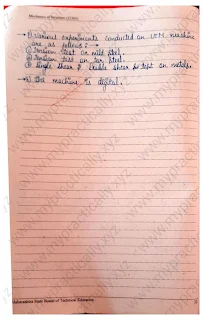 Mechanics of Structures (22303)
→ 3) Various experiments conducted on UTM machine
are as follows :- →
① Tension test on mild steel.
② Tension test on tor steel.
③ Single shear & double shear test on metals.
→ 4) The machine is digital.
www.mypractically.xyz
Maharashtra State Board of Technical Education